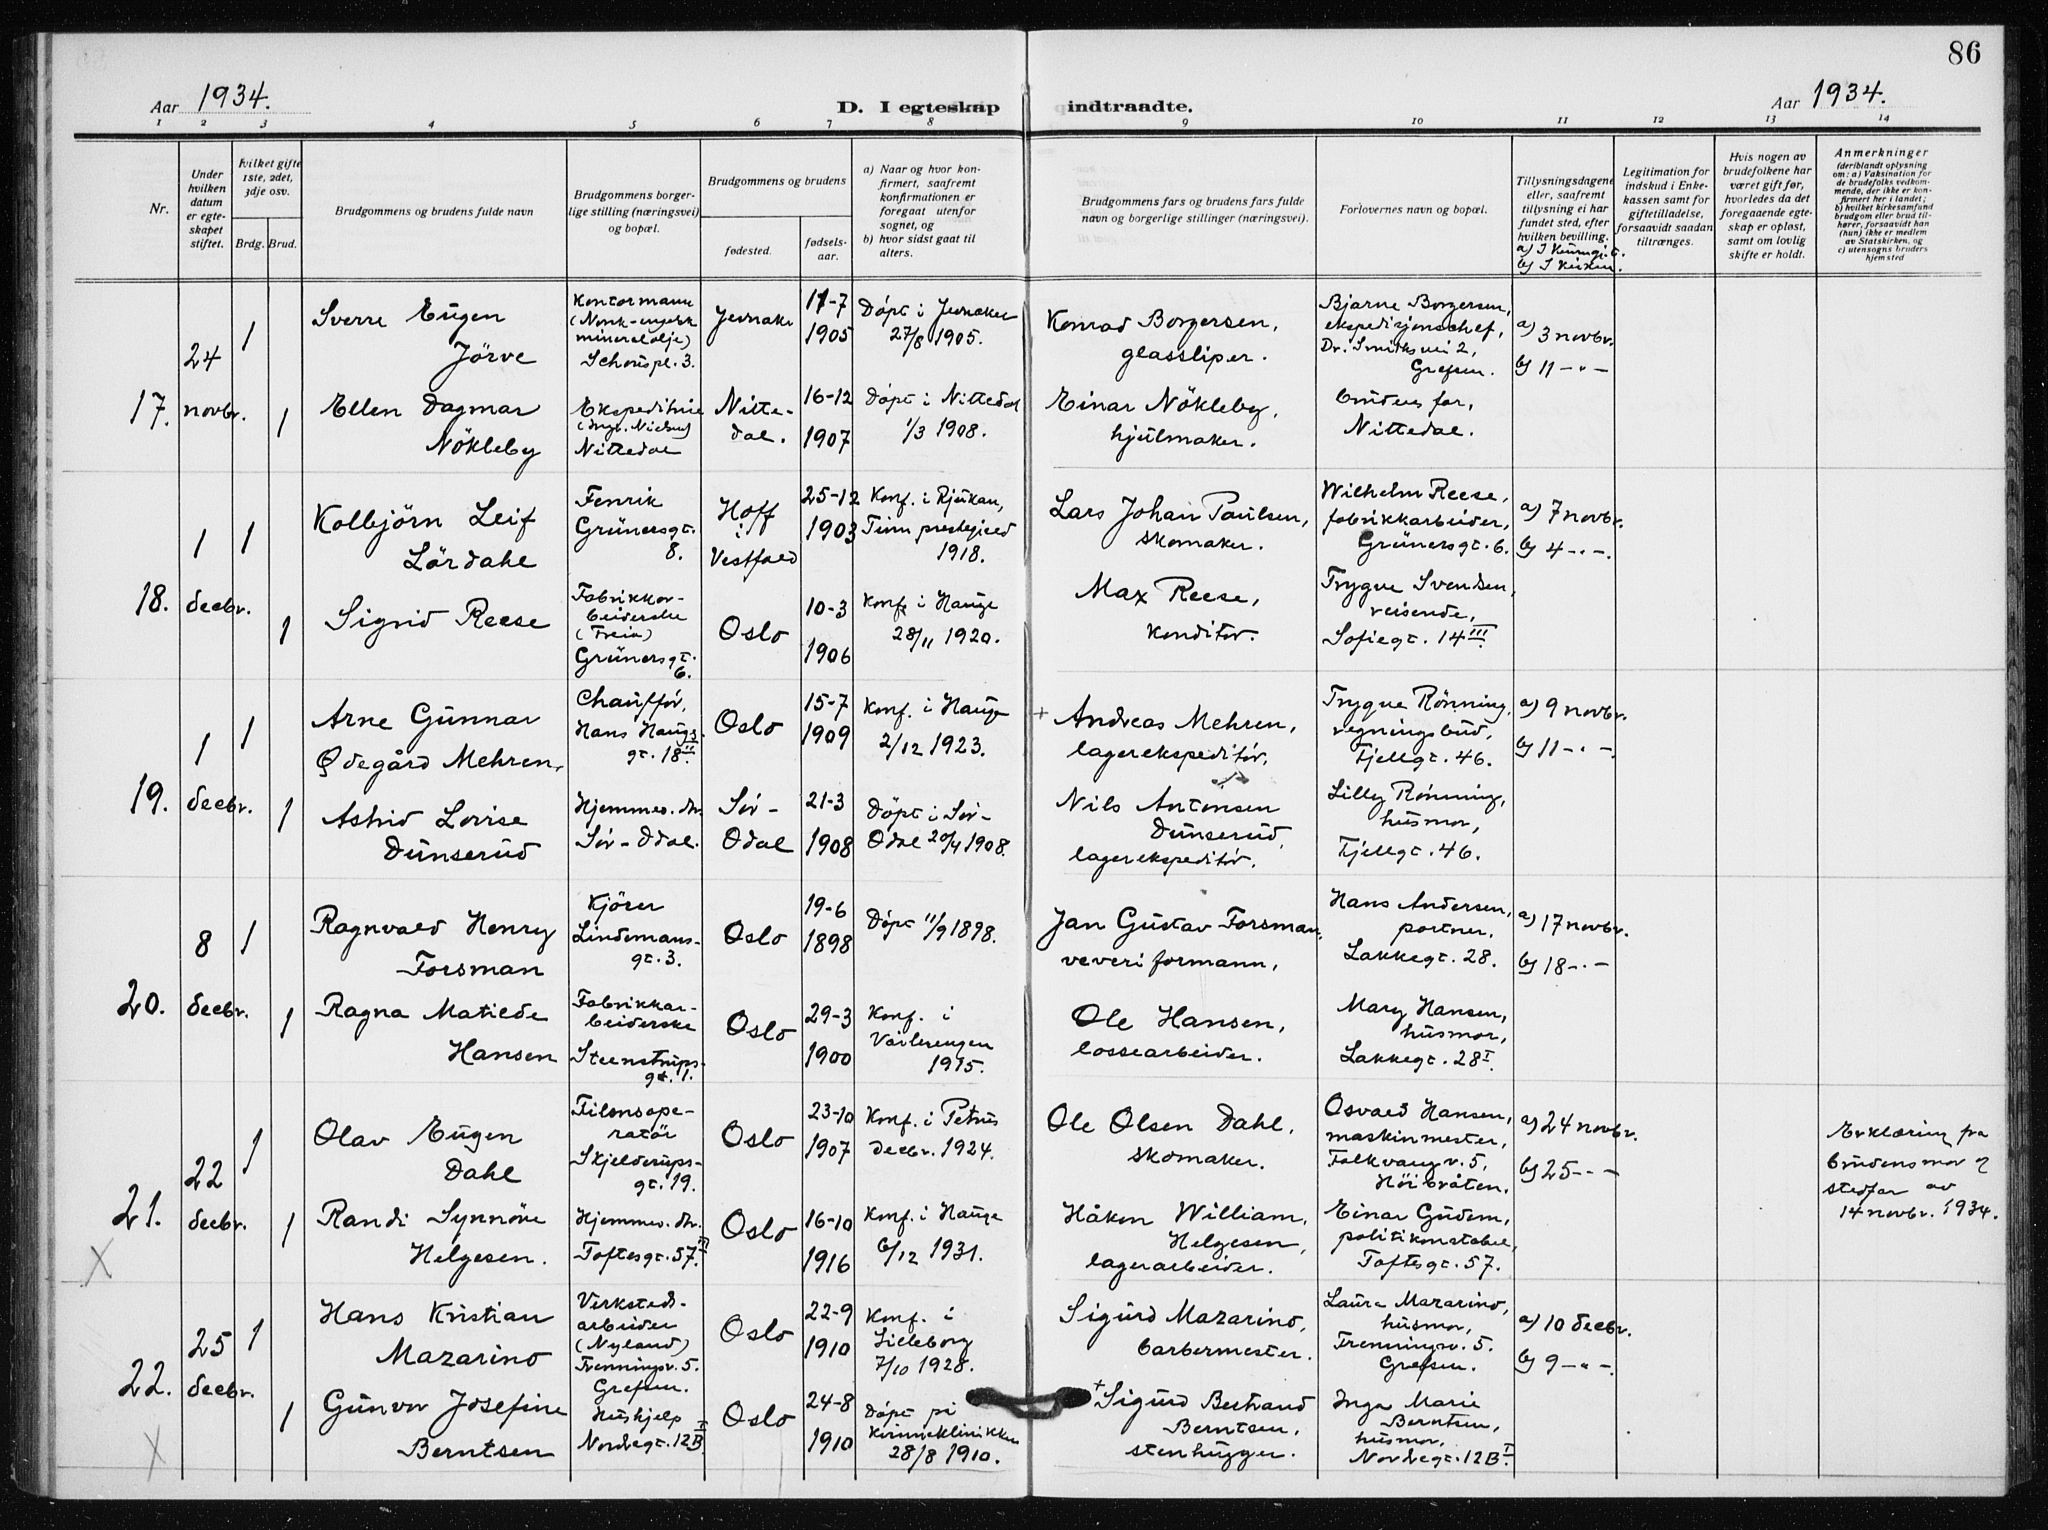 86
Aar 1934.
D. I egteskap indtraadte.
Aar 1934.
1 2 3 4 5 6 7 8 9 10 11 12 13 14
Nr.
Under
hvilken
datum
er egte-
skapet
stiftet.
Hvilket gifte
1ste, 2det,
3dje osv.
Brdg. Brud.
Brudgommens og brudens fulde navn
Brudgommens borger-
lige stilling (næringsvei)
og bopæl.
Brudgommens og brudens
fødested.
fødsels-
aar.
a) Naar og hvor kon-
firmert, saafremt
konfirmationen er
foregaat utenfor
sognet, og
b) hvor sidst gaat til
alters.
Brudgommens fars og brudens fars fulde
navn og borgerlige stillinger (næringsvei).
Forlovernes navn og bopæl.
Tillysningsdagene
eller, saafremt
tillysning ei har
fundet sted, efter
hvilken bevilling.
b) I kirken.
Legitimation for
indskud i Enke-
kassen samt for
giftetilladelse,
forsaavidt saadan
tiltrænges.
Hvis nogen av
brudefolkene har
været gift før,
hvorledes da det
foregaaende egte-
skap er opløst,
samt om lovlig
skifte er holdt.
Anmerkninger
(deriblandt oplysning
om: a) Vaksination for
de brudefolks vedkom-
mende, der ikke er kon-
firmert her i landet;
b) hvilket kirkesamfund
brudgom eller brud til-
hører, forsaavidt han
(hun) ikke er medlem
av Statskirken, og
c) utensogns bruders
hjemsted
17.
24
novbr.
1
Sverre Eugen
Jörve
Kontormann
(Norsk-engelsk
mineralolje)
Schouspl. 3.
Jevnaker
11-7
1905
Döpt i Jevnaker
27/8 1905.
Konrad Borgersen,
glassliper.
Bjarne Borgersen,
ekspedisjonschef,
Dr. Smiths vei 2,
Grefsen.
a) 3 novbr.
b) 11 - " -
1
Ellen Dagmar
Nökleby
Nittedal
Nitte-
dal.
16-12
1907
Döpt i Nittedal
1/3 1908.
Einar Nökleby,
hjulmaker.
Brudens far,
Nittedal.
18.
1
decbr.
1
Kolbjörn Leif
Lördahl
Fenrik
Grünersgt.
8.
Hoff
i
Vestfold
25-12
1903
Konf. i Rjukan,
Tinn prestegjeld
1918.
Lars Johan Paulsen,
skomaker.
Wilhelm Reese,
fabrikkarbeider,
Grünersgt. 6.
a) 7 novbr.
b) 4 - " -
1
Sigrid Reese
Fabrikkar-
beiderske
(Freia)
Grünersgt.
6.
Oslo
10-3
1906
Konf. i Hauge
28/11 1920.
Max Reese,
konditor.
Trygve Svendsen,
reisende,
Sofiegt. 14 III
19.
1
decbr.
1
Arne Gunnar
Ødegård Mehren,
Chauffør,
Hans Haugs
gt. 18 II
Oslo
15-7
1909
Konf. i Hauge
2/12 1923.
+ Andreas Mehren,
lagerekspeditör.
Trygve Rönning,
regningsbud,
Fjellgt. 46.
a) 9 novbr.
b) 11 - " -
1
Astrid Lovise
Dunserud
Hjemmev. dtr.
Sör-Odal.
Sör-
Odal
21-3
1908
Döpt i Sör-
Odal 20/4 1908.
Nils Antonsen
Dunserud,
lagerekspeditör.
Lilly Rönning,
husmor,
Fjellgt. 46.
20.
8
decbr.
1
Ragnvald Henry
Forsman
Kjörer
Lindemans-
gt. 3.
Oslo
19-6
1898
Döpt 11/9 1898.
Jan Gustav Forsman,
veveriformann,
Hans Andersen,
portner,
Lakkegt. 28.
a) 17 novbr.
b) 18 - " -
1
Ragna Matilde
Hansen
Fabrikkar-
beiderske
Steenstrups-
gt. 1.
Oslo
29-3
1900
Konf. i
Vålerengen
1915.
Ole Hansen,
lossearbeider.
Mary Hansen,
husmor,
Lakkegt. 28 I.
21.
22
decbr.
1
Olav Eugen
Dahl
Filmsope-
ratör
Skjelderups-
gt. 19.
Oslo
23-10
1907
Konf. i Petrus
decbr. 1924.
Ole Olsen Dahl,
skomaker.
Osvald Hansen,
maskinmester,
Folkvangv. 5,
Höibråten.
a) 24 novbr.
b) 25 - " -
Erklæring fra
brudens mor og
stedfar av
14 novbr. 1934.
X
1
Randi Synnöve
Helgesen.
Hjemmev. dtr.
Toftesgt. 57 III
Oslo
16-10
1916
Konf. i Hauge
6/12 1931.
Håkon William,
Helgesen,
lagerarbeider.
Einar Gudem,
politikonstabel,
Toftesgt. 57.
22.
25
decbr.
1
Hans Kristian
Mazarino
Verksteds-
arbeider
(Nyland)
Trenningsv. 5.
Grefsen.
Oslo
22-9
1910
Konf. i
Lilleborg
7/10 1928.
Sigurd Mazarino,
barbermester.
Laura Mazarino,
husmor,
Trenningsv. 5.
Grefsen.
a) 10 decbr.
b) 9 - " -
X
1
Gunvor Josefine
Berntsen
Hushjelp
Nordregt. 12B I
Oslo
24-8
1910
Döpt på
Kvinneklinikken
28/8 1910.
+ Sigurd Bertrand
Berntsen,
stenhugger.
Inga Marie
Berntsen,
husmor,
Nordregt. 12B I.